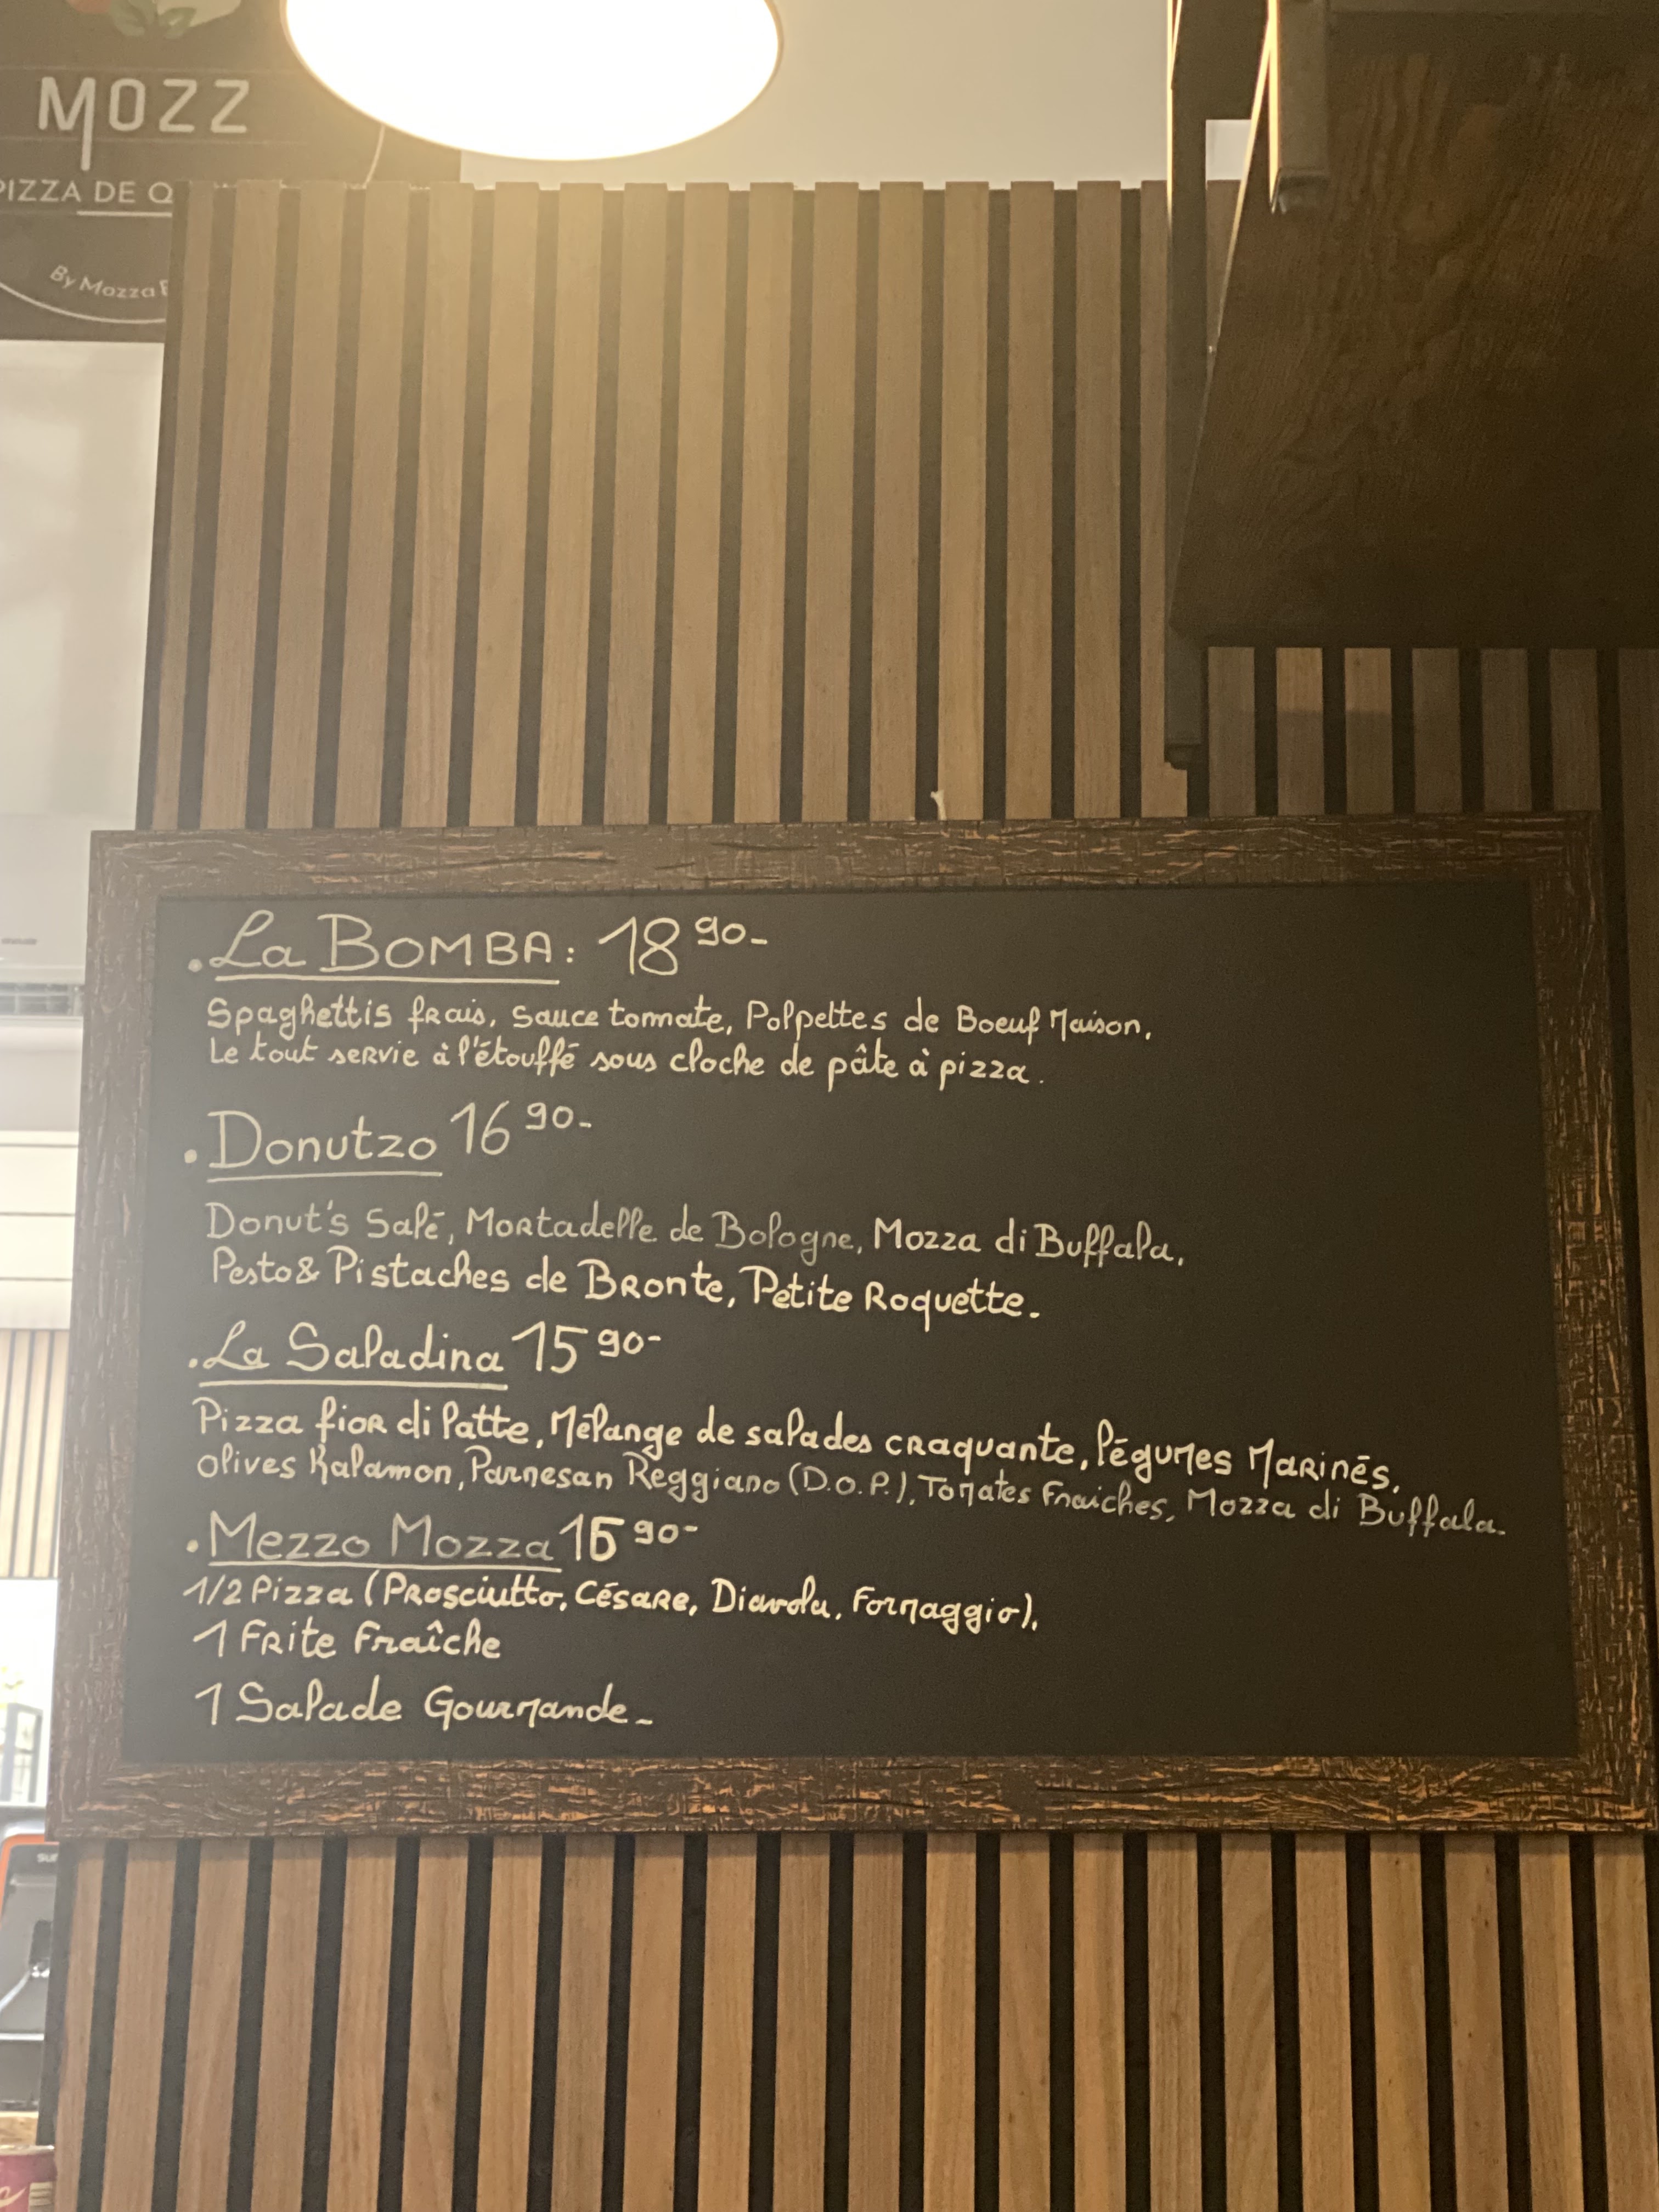 MOZZ
PIZZA DE Q
By Mozza
. La BOMBA : 18 90-
Spaghettis frais, Sauce tomate, Polpettes de Boeuf Maison,
Le tout servie à l'étouffé sous cloche de pâte à pizza.
. Donutzo 16 90-
Donut's Salé, Mortadelle de Bologne, Mozza di Buffala,
Pesto & Pistaches de Bronte, Petite Roquette.
. La Saladina 15 90-
Pizza fior di latte, Mélange de salades craquante, légumes Marinés,
olives Kalamon, Parmesan Reggiano (D.O.P.), Tomates Fraiches, Mozza di Buffala.
. Mezzo Mozza 90-
1/2 Pizza (Prosciutto, Césare, Diavola, Formaggio),
1 Frite Fraîche
1 Salade Gourmande-